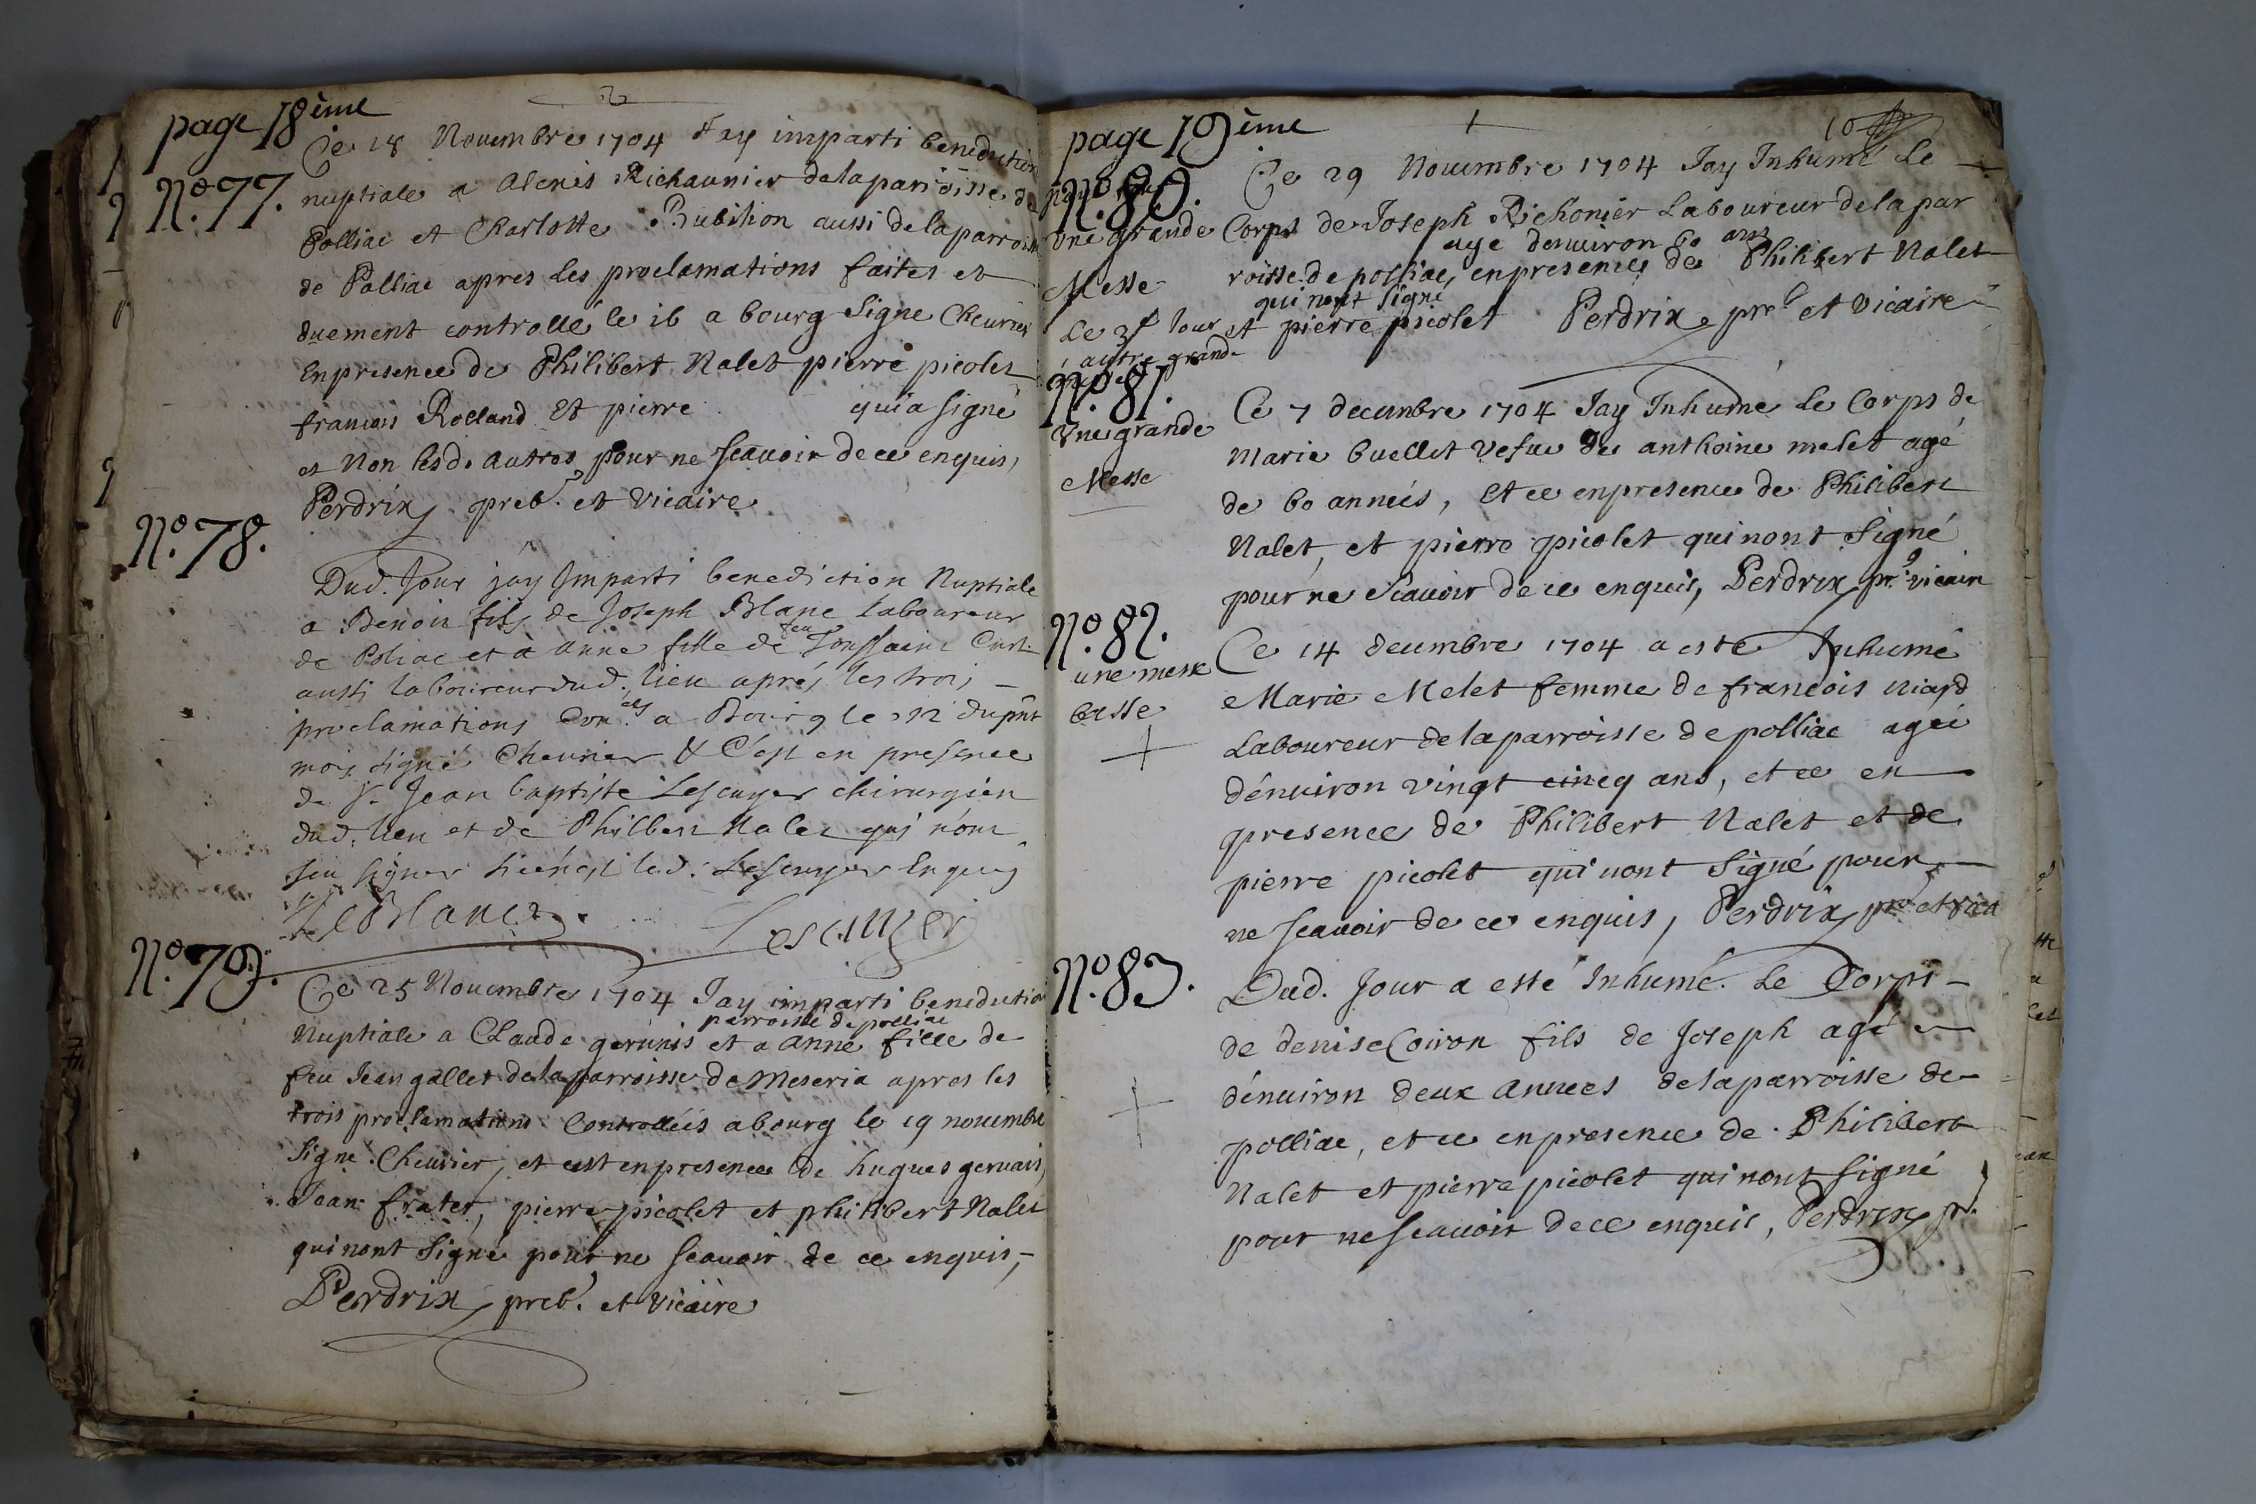 page 18ème
Ce 18 Nouembre 1704 Jay imparti benediction
No. 77.
nuptiale a Alexis Richaunier de la parroisse de
Polliac et Charlotte Bubilion aussi de la parroisse
de Polliac apres les proclamations faites et
duement controllé le 16 a bourg Signe Cheurier
En presence de Philibert Nalet pierre picolet
francois Rolland Et pierre qui a signé
et Non lesd. autres pour ne scauoir de ce enquis,
Perdrix preb. et Vicaire
No. 78.
Dud. Jour jáy Imparti benediction Nuptiale
a Benoit fils de Joseph Blanc laboureur
de Poliac et a anne fille de feu Toussaint
aussi laboureur dud. lieu aprés les trois
proclamations a Bourg le 12 du pnt
mois signé Cheurier & C'est en presence
de Sr. Jean baptiste Lescuyer chirurgien
dud. lieu et de Philibert Nalet qui n'ont
sceu signer led. Lescuyer Enquis
LeBlanc Lescuyer
No. 79.
Ce 25 Nouembre 1704 Jay imparti benediction
Nuptiale a Claude geruais parroisse de polliac et a Anne fille de
feu Jean gallet de la parroisse de Meseria apres les
trois proclamations Controlléés a bourg le 19 nouembre
Signe Cheurier, et cest en presence de hugues geruais,
Jean frater, pierre picolet et philibert Nalet
qui nont Signé pour ne scauoir de ce enquis,
Perdrix preb. et Vicaire
page 19ème
10
No. 80.
Ce 29 Nouembre 1704 Jay Inhumé Le
une grande
Corps de Joseph Richonier Laboureur de la par
Messe
roisse de polliac, age denuiron 60 ans en presence de Philibert Nalet
Le 3e Jour
et pierre picolet qui nont Signé Perdrix pre et Vicaire
autre grande
No. 81.
une grande
Messe
Ce 7 decembre 1704 Jay Inhumé le Corps de
Marie buellet Vefue de anthoine melet agé
de 60 années, Et ce en presence de Philibert
Nalet, et pierre picolet qui nont Signé
pour ne scauoir de ce enquis, Perdrix pr. vicair
No. 82.
une messe
basse
Ce 14 decembre 1704 a este Inhumé
Marie Melet femme de francois niard
Laboureur de la parroisse de polliac agéé
dénuiron vingt cincq ans, et ce en
presence de Philibert Nalet et de
pierre picolet qui nont Signé pour
ne scauoir de ce enquis, Perdrix pre et vica
No. 83.
Dud. Jour a esté Inhumé Le Corps
de denise Coiron fils de Joseph agé
dénuiron deux Annees de la parroisse de
polliac, et ce en presence de Philibert
Nalet et pierre picolet qui nont Signé
pour ne scauoir de ce enquis, Perdrix p.